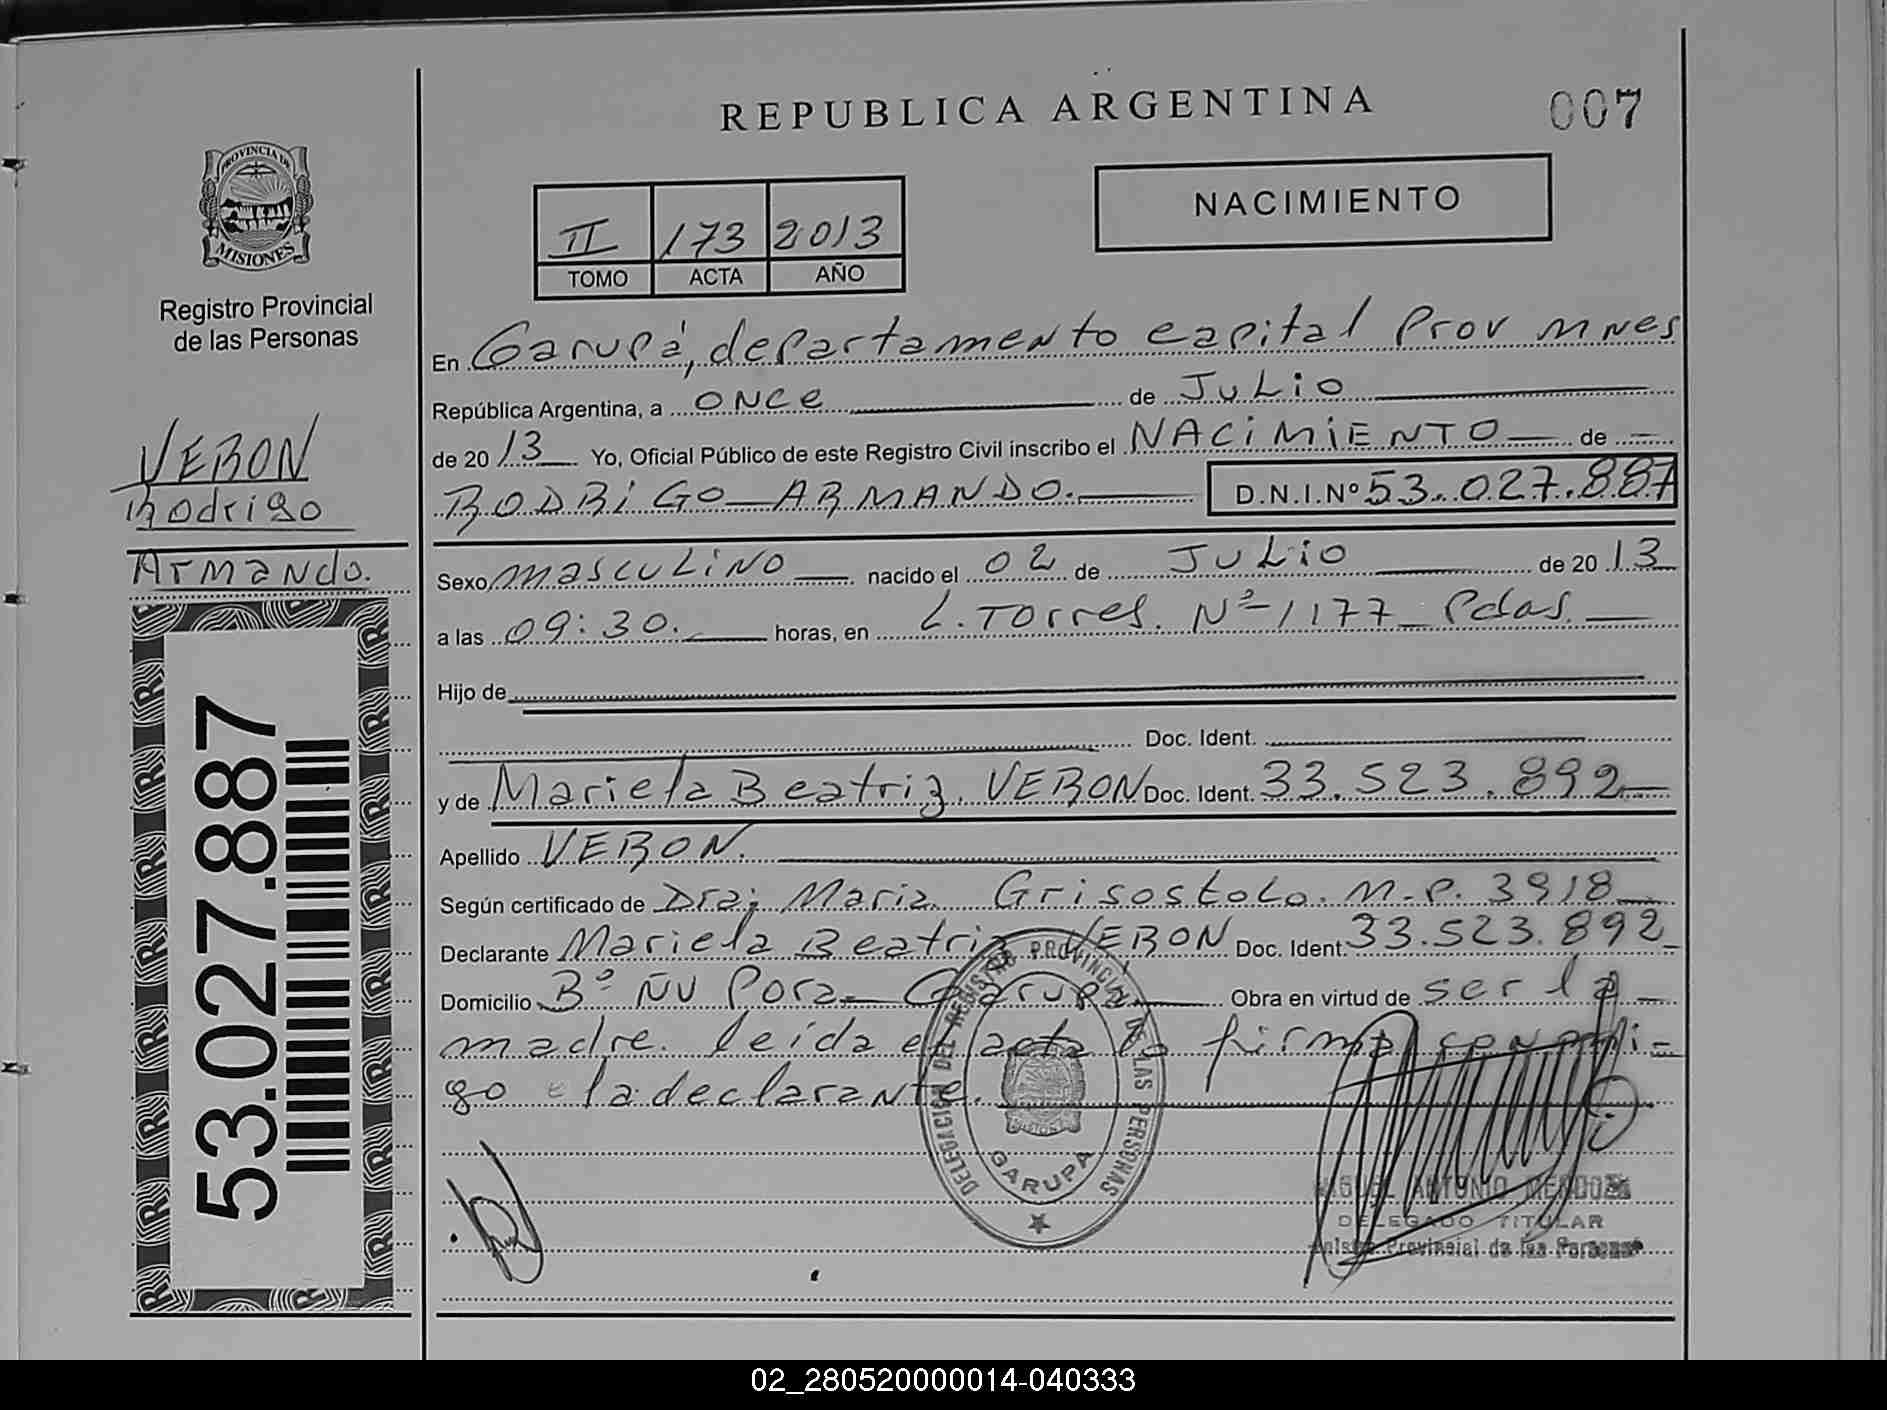 REPUBLICA ARGENTINA
007
PROVINCIA DE
MISIONES
Registro Provincial
de las Personas
NACIMIENTO
II 173 2013
TOMO ACTA AÑO
VERON
Rodrigo
Armando.
53.027.887
En Garupá, departamento capital Prov mnes
República Argentina, a once de JuLio
de 2013 Yo, Oficial Público de este Registro Civil inscribo el NACiMiENTO de
RODRiGO ARMANDO. D.N.I.Nº 53.027.887
Sexo masculino nacido el 02 de JuLio de 2013
a las 09:30. horas, en L. Torres. Nº 1177 Pdas.
Hijo de
Doc. Ident.
y de Mariela Beatriz VERON Doc. Ident. 33.523.892
Apellido VERON.
Según certificado de Dra; Maria Grisostolo. M.P. 3918
Declarante Mariela Beatriz VERON Doc. Ident. 33.523.892
Domicilio Bº ÑU Pora Garupa Obra en virtud de ser la
madre. leída el acta la firma conmi-
go la declarante.
DELEGACION DEL REGISTRO PROVINCIAL DE LAS PERSONAS
MISIONES
GARUPA
MIGUEL ANTONIO MENDOZA
DELEGADO TITULAR
Provincial de las Personas
02_280520000014-040333